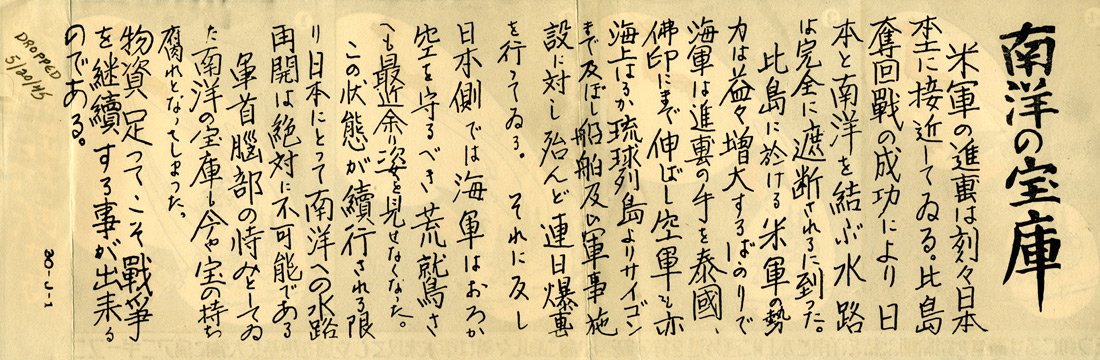 南洋の宝庫
米軍の進襲は刻々日本
本土に接近してゐる。比島
奪回戰の成功により日
本と南洋を結ぶ水路
は完全に遮断されるに到った。
比島に於ける米軍の勢
力は益々増大するばかりで
海軍は進襲の手を泰國、
佛印にまで伸ばし空軍も亦
海上はるか琉球列島よりサイゴン
まで及ぼし船舶及び軍事施
設に対し殆んど連日爆襲
を行ってゐる。それに反し
日本側では海軍はおろか
空を守るべき荒鷲さ
へも最近余り姿を見せなくなった。
この状態が續行される限
り日本にとって南洋への水路
再開は絶対に不可能である
軍首腦部の恃みとしてゐ
た南洋の宝庫も今や宝の持ち
腐れとなってしまった。
物資足ってこそ戰爭
を継續する事が出来る
のである。
80-J-1
DROPPED
5/20/45